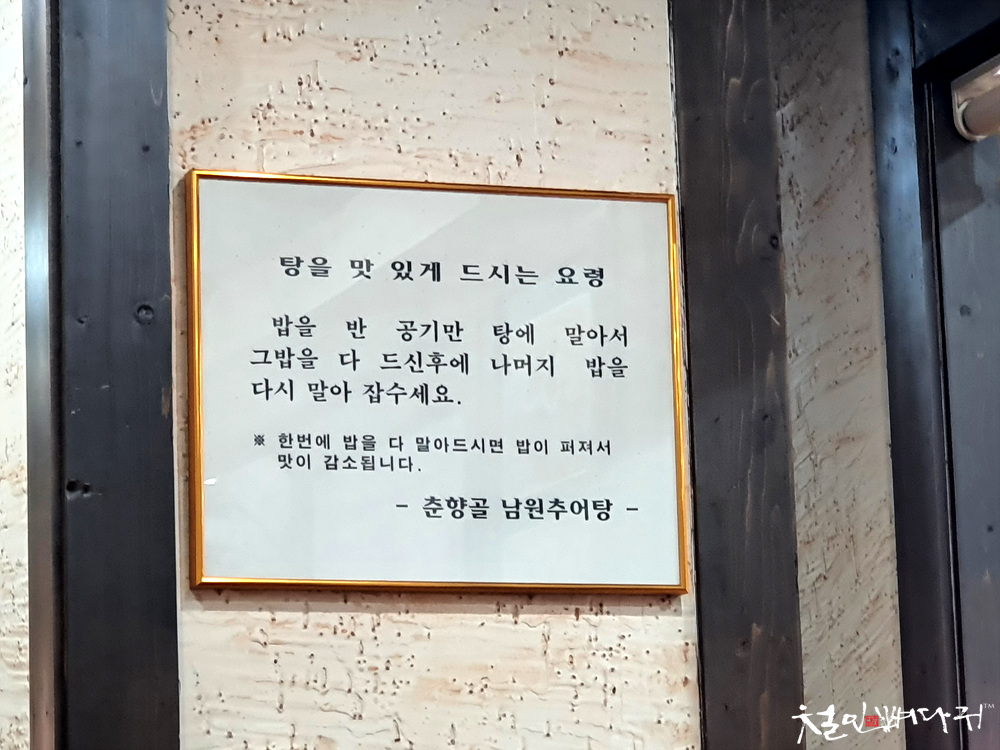 탕을 맛 있게 드시는 요령
밥을 반 공기만 탕에 말아서
그밥을 다 드신후에 나머지 밥을
다시 말아 잡수세요.
※ 한번에 밥을 다 말아드시면 밥이 퍼져서
맛이 감소됩니다.
- 춘향골 남원추어탕 -